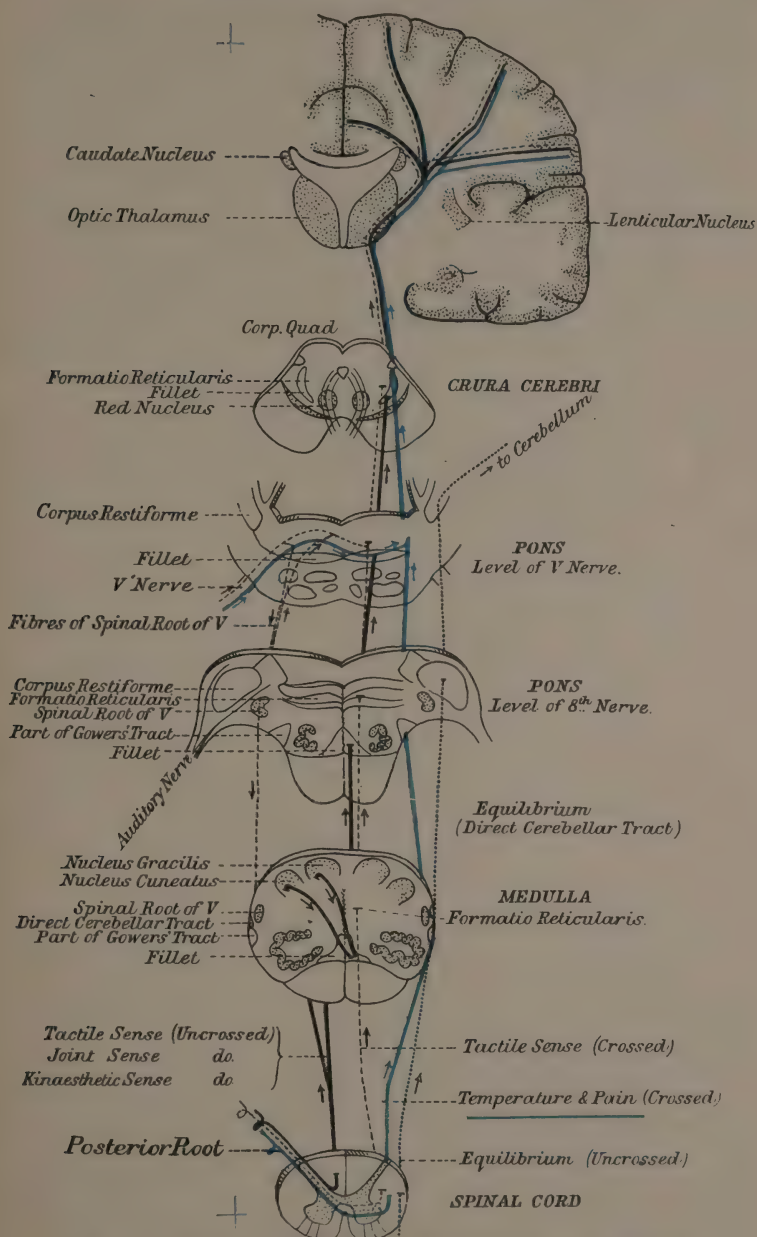 Caudate Nucleus
Optic Thalamus
Lenticular Nucleus
Corp. Quad
Formatio Reticularis
Fillet
Red Nucleus
CRURA CEREBRI
→ to Cerebellum
Corpus Restiforme
Fillet
V Nerve
Fibres of Spinal Root of V
PONS
Level of V Nerve.
Corpus Restiforme
Formatio Reticularis
Spinal Root of V
Part of Gowers' Tract
Fillet
Auditory Nerve
PONS
Level of 8th Nerve.
Equilibrium
(Direct Cerebellar Tract)
Nucleus Gracilis
Nucleus Cuneatus
Spinal Root of V
Direct Cerebellar Tract
Part of Gowers' Tract
Fillet
MEDULLA
Formatio Reticularis.
Tactile Sense (Uncrossed)
Joint Sense do.
Kinaesthetic Sense do.
Tactile Sense (Crossed.)
Temperature & Pain (Crossed.)
Posterior Root
Equilibrium (Uncrossed.)
SPINAL CORD